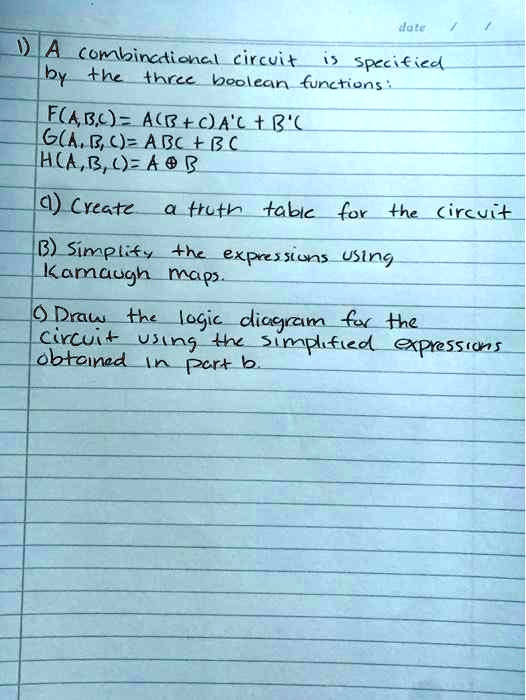 date / /
1) A combinational circuit is specified
by the three boolean functions:
F(A,B,C) = A(B+C)A'C + B'C
G(A,B,C) = ABC + BC
H(A,B,C) = A ⊕ B
a) Create a truth table for the circuit
B) Simplify the expressions using
Karnaugh maps.
c) Draw the logic diagram for the
circuit using the simplified expressions
obtained in part b.